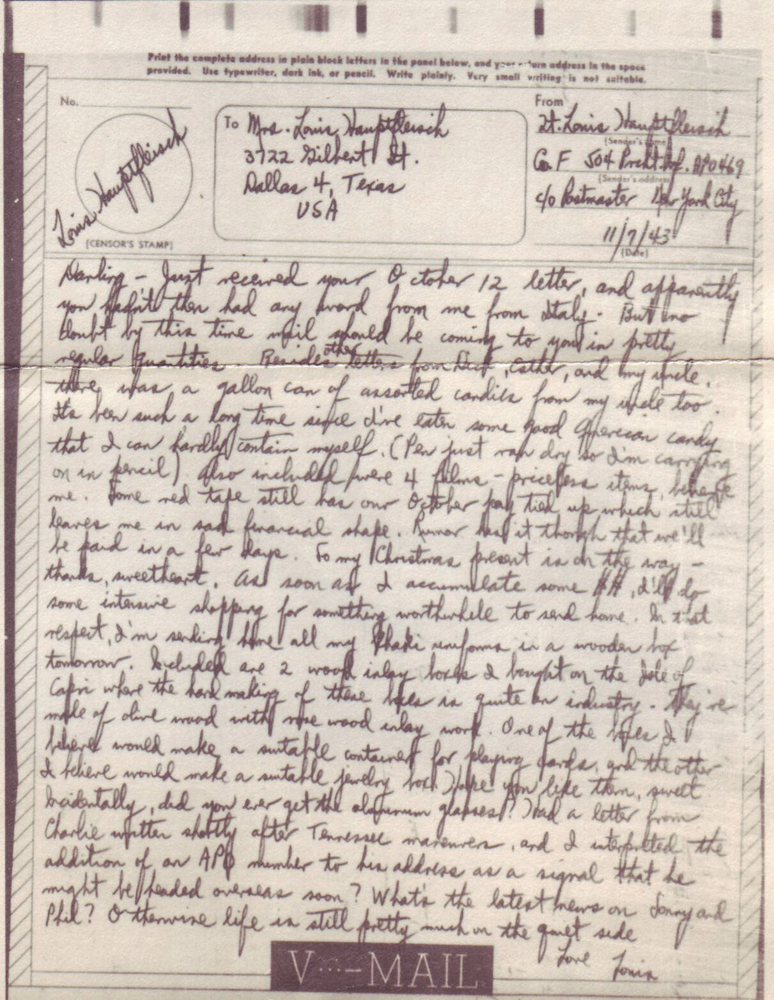 Print the complete address in plain block letters in the panel below, and your return address in the space
provided. Use typewriter, dark ink, or pencil. Write plainly. Very small writing is not suitable.
No.
Louis Hauptfleisch
(CENSOR'S STAMP)
To Mrs. Louis Hauptfleisch
3722 Gilbert St.
Dallas 4, Texas
USA
From
Lt. Louis Hauptfleisch
(Sender's name)
Co. F 504 Prcht. Inf. APO 469
(Sender's address)
c/o Postmaster New York City
11/7/43
(Date)
Darling – Just received your October 12 letter, and apparently
you hadn't then had any word from me from Italy. But no
doubt by this time mail should be coming to you in pretty
regular quantities. Besides other letters from Dick, Esther, and my uncle,
there was a gallon can of assorted candies from my uncle too.
It's been such a long time since I've eaten some good American candy
that I can hardly contain myself. (Pen just ran dry so I'm carrying
on in pencil). Also included were 4 films – priceless items, believe
me. Some red tape still has our October pay tied up which still
leaves me in sad financial shape. Rumor has it though that we'll
be paid in a few days. So my Christmas present is on the way –
thanks, sweetheart. As soon as I accumulate some ##, I'll do
some intensive shopping for something worthwhile to send home. In that
respect, I'm sending home all my khaki uniforms in a wooden box
tomorrow. Included are 2 wood inlay boxes I bought on the Isle of
Capri where the hand making of these boxes is quite an industry. They're
made of olive wood with rose wood inlay work. One of the boxes I
believe would make a suitable container for playing cards, and the other
I believe would make a suitable jewelry box. Hope you like them, sweet.
Incidentally, did you ever get the aluminum glasses? Had a letter from
Charlie written shortly after Tennessee maneuvers, and I interpreted the
addition of an APO number to his address as a signal that he
might be headed overseas soon? What's the latest news on Sonny and
Phil? Otherwise life is still pretty much on the quiet side
Love Louis
V···–MAIL